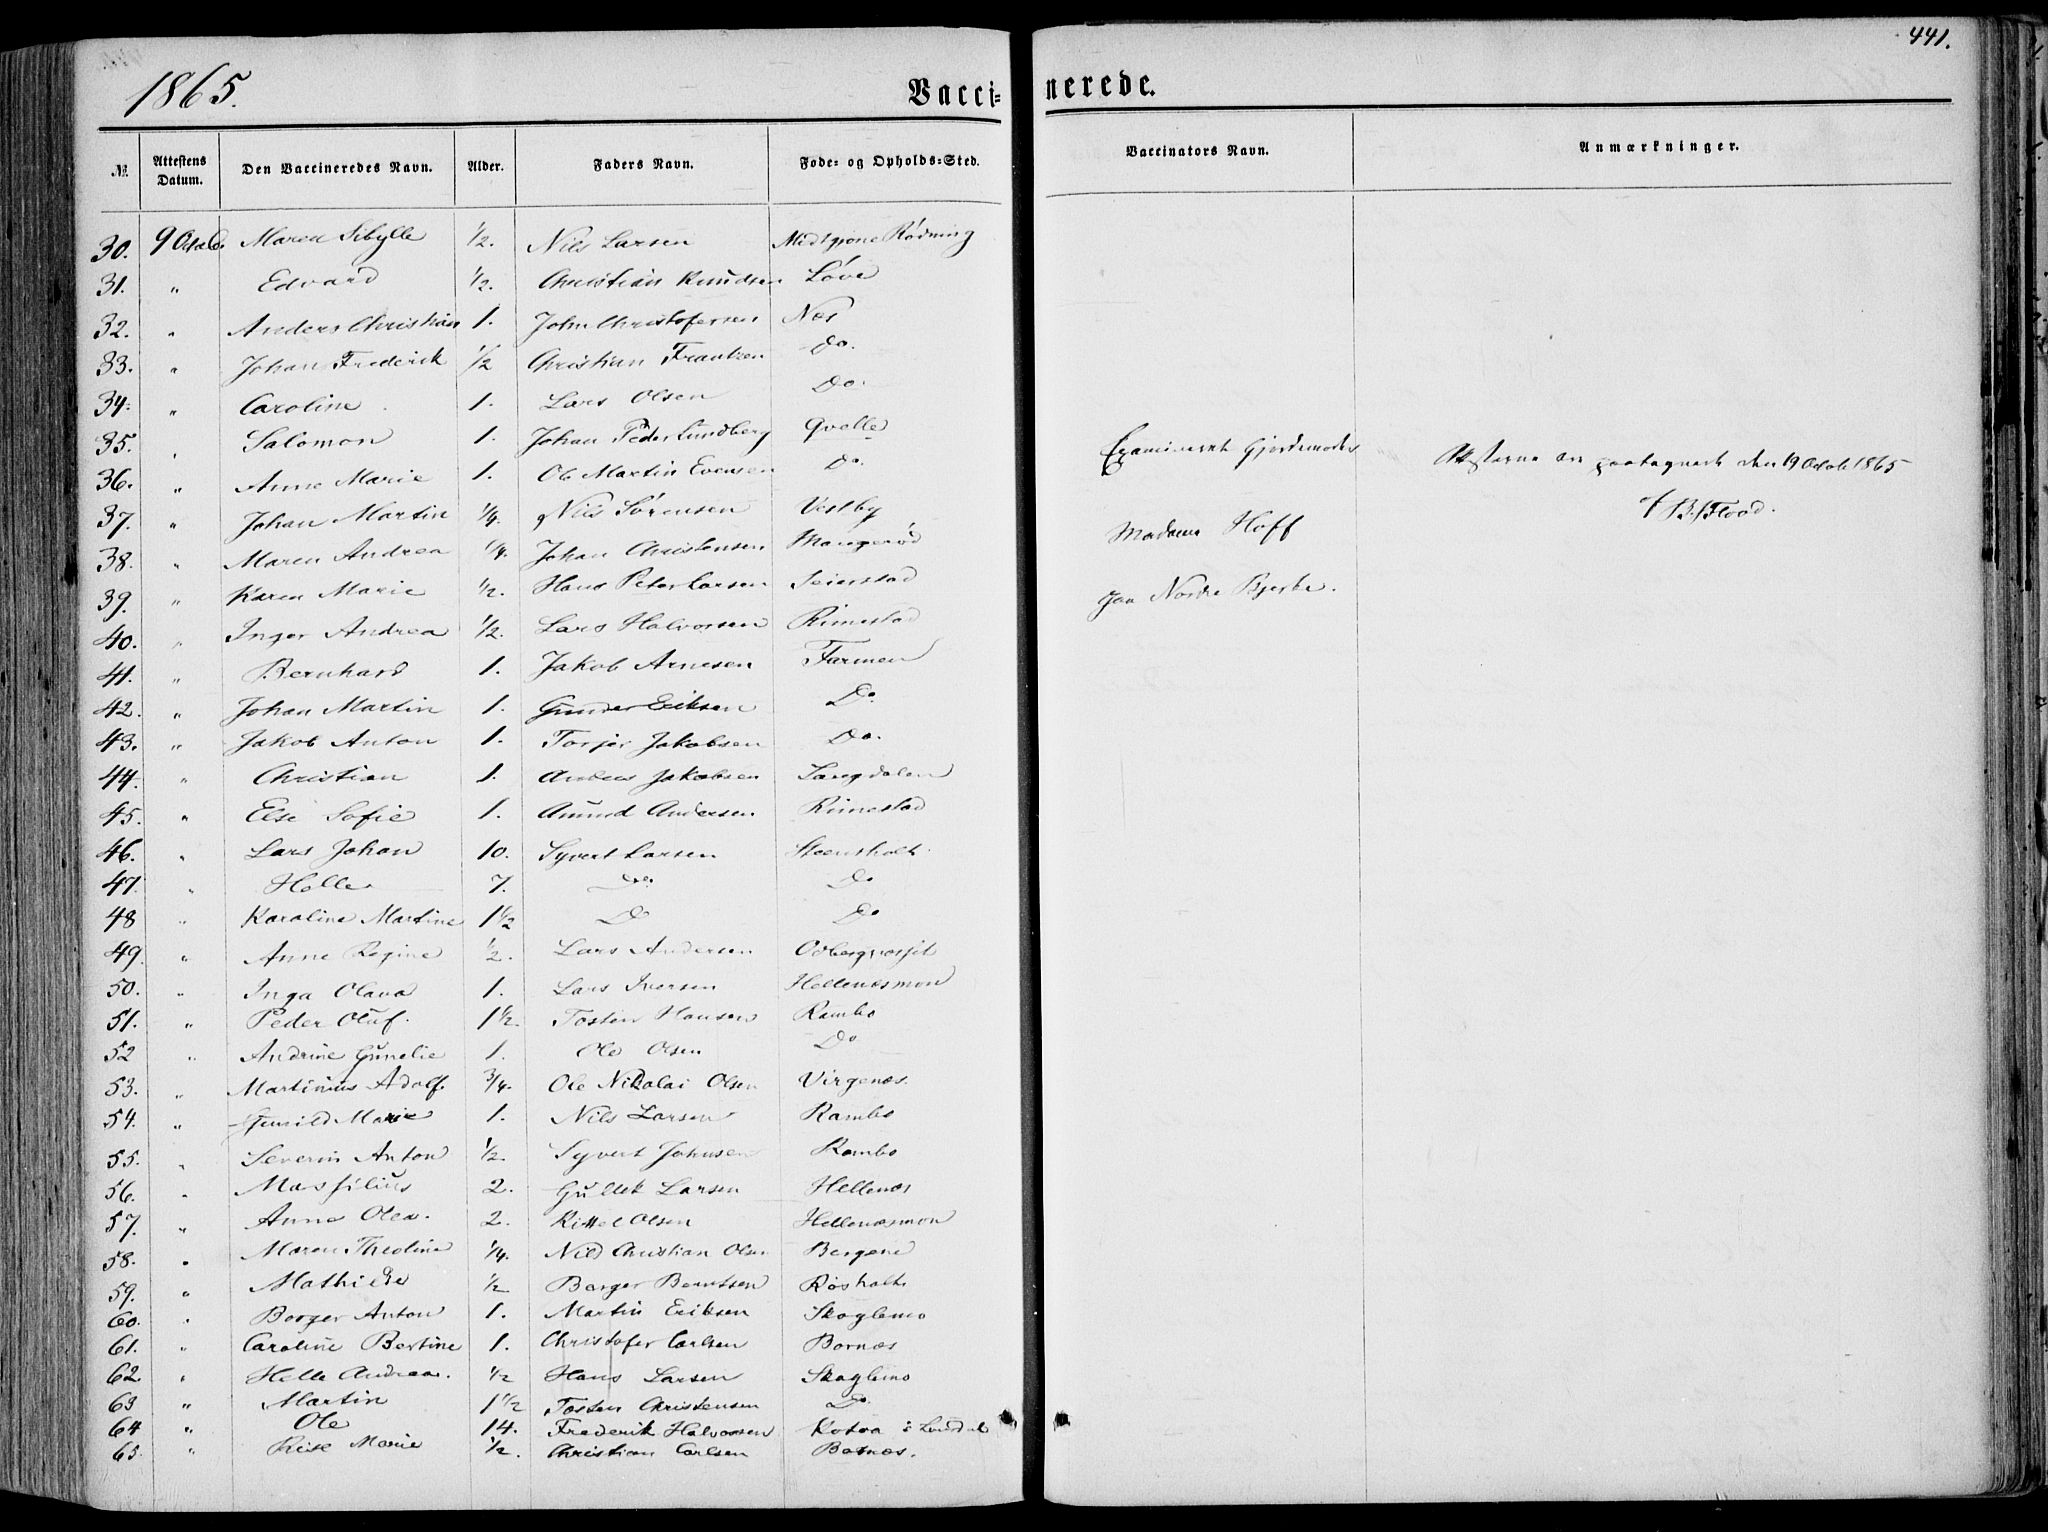 441.
1865.
Vacci- nerede.
№ Attestens Datum. Den Vaccineredes Navn. Alder. Faders Navn. Føde- og Opholds-Sted. Vaccinators Navn. Anmærkninger.
30. 9 Maren Sibylle 1/2. Nils Larsen Rødning
31. " Edvard 1/2. Christian Knudsen Løve
32. " Anders Christian 1. John Christofersen Næs
33. " Johan Frederik 1/2 Christian Frantzen Do.
34. " Caroline 1. Lars Olsen Do.
35. " Salomon 1. Johan Peder Lundberg Qvelle
36. " Anne Marie 1. Ole Martin Evensen Do.
37. " Johan Martin 1/4. Nils Sørensen Vestby
38. " Maren Andrea 1/4. Johan Christensen Mangerød
39. " Karen Marie 1/2. Hans Peter Larsen Seierstad
40. " Inger Andrea 1/2. Lars Halvorsen Rimestad
41. " Bernhard 1. Jakob Arnesen Farmen
42. " Johan Martin 1. Gunder Eriksen Do.
43. " Jakob Anton 1. Torjer Jakobsen Do.
44. " Christian 1. Anders Jakobsen Langdalen
45. " Else Sofie 1. Amund Andersen Rimestad
46. " Lars Johan 10. Syvert Larsen Steensholt.
47. " Helle 7. Do. Do
48 " Karoline Martine 1 1/2 Do Do
49. " Anne Regine 1/2. Lars Andersen
50. " Inga Olava 1. Lars Iversen Hellenæsmon
51. " Peder Oluf. 1 1/2. Tosten Hansen Rambo
52 " Andrine Gunelie 1. Ole Olsen Do
53. " Martinius Adolf. 3/4. Ole Nikolai Olsen Virgenæs.
54. " Gunild Marie 1. Nils Larsen Rambo
55. " Severin Anton 1/2. Syvert Johnsen Rambo
56. " Masfilius 2. Gullek Larsen Hellenæs
57. " Anne Olea. 2. Kittel Olsen Hellenæsmon
58. " Maren Theoline 1/4. Nils Christian Olsen Bergene
59. " Mathilde 1/2 Borger Berntsen Røsholt
60. " Borger Anton 1. Martin Eriksen Skoglemo
61. " Caroline Bertine 1. Christofer Carlsen Bornæs
62 " Helle Andrea. 1/2 Hans Larsen Skoglemo
63 " Martin 1 1/2 Tosten Christensen Do.
64 " Ole 14. Frederik Halvorsen
65. " Marie 1/2. Christian Carlsen Bornæs.
Examineret Gjordemoder
Madame Hoff
Nordre Bjerke.
Attesterne ere paategnede den 19 Octob 1865
Flood.